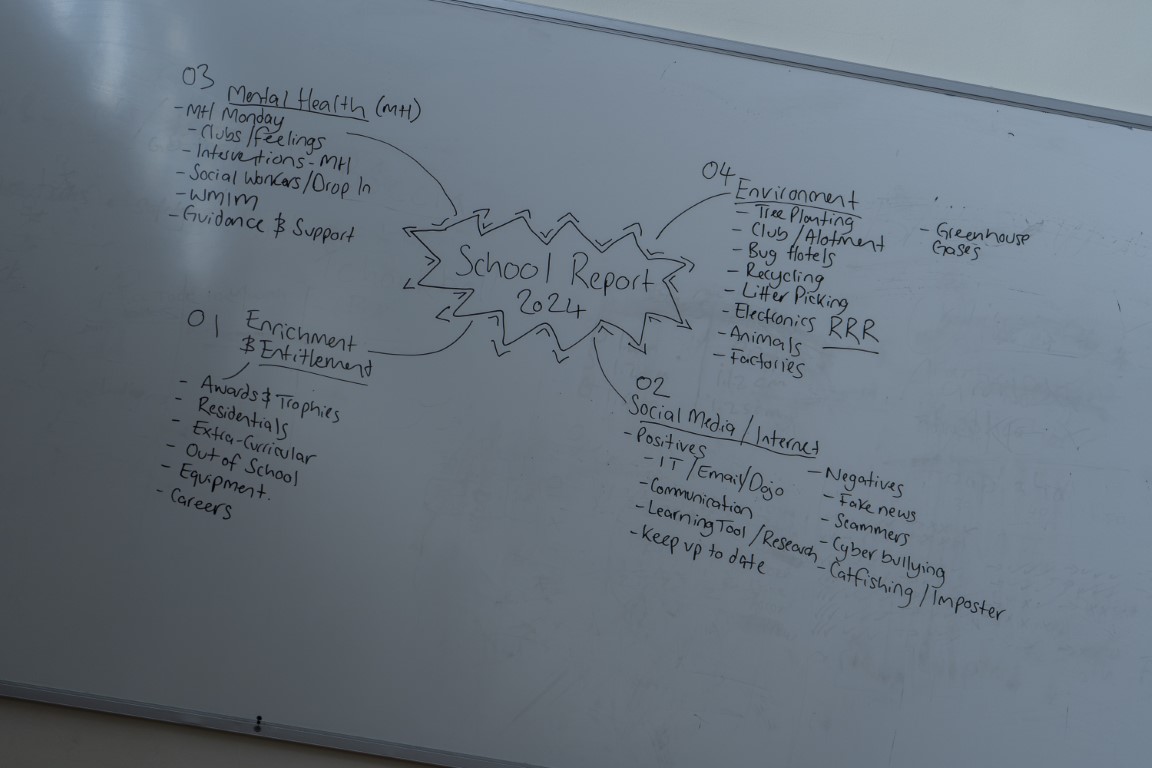 School Report
2024
01
Enrichment
& Entitlement
- Awards & Trophies
- Residentials
- Extra-Curricular
- Out of School
- Equipment.
- Careers
02
Social Media / Internet
- Positives
- IT / Email / Dojo
- Communication
- Learning Tool / Research
- Keep up to date
- Negatives
- Fake news
- Scammers
- Cyber bullying
- Catfishing / Imposter
03
Mental Health (MH)
- MH Monday
- Clubs / Feelings
- Interventions - MH
- Social Workers / Drop In
- WMIM
- Guidance & Support
04
Environment
- Tree Planting
- Club / Alotment
- Bug Hotels
- Recycling
- Litter Picking
- Electronics RRR
- Animals
- Factories
- Greenhouse
Gases